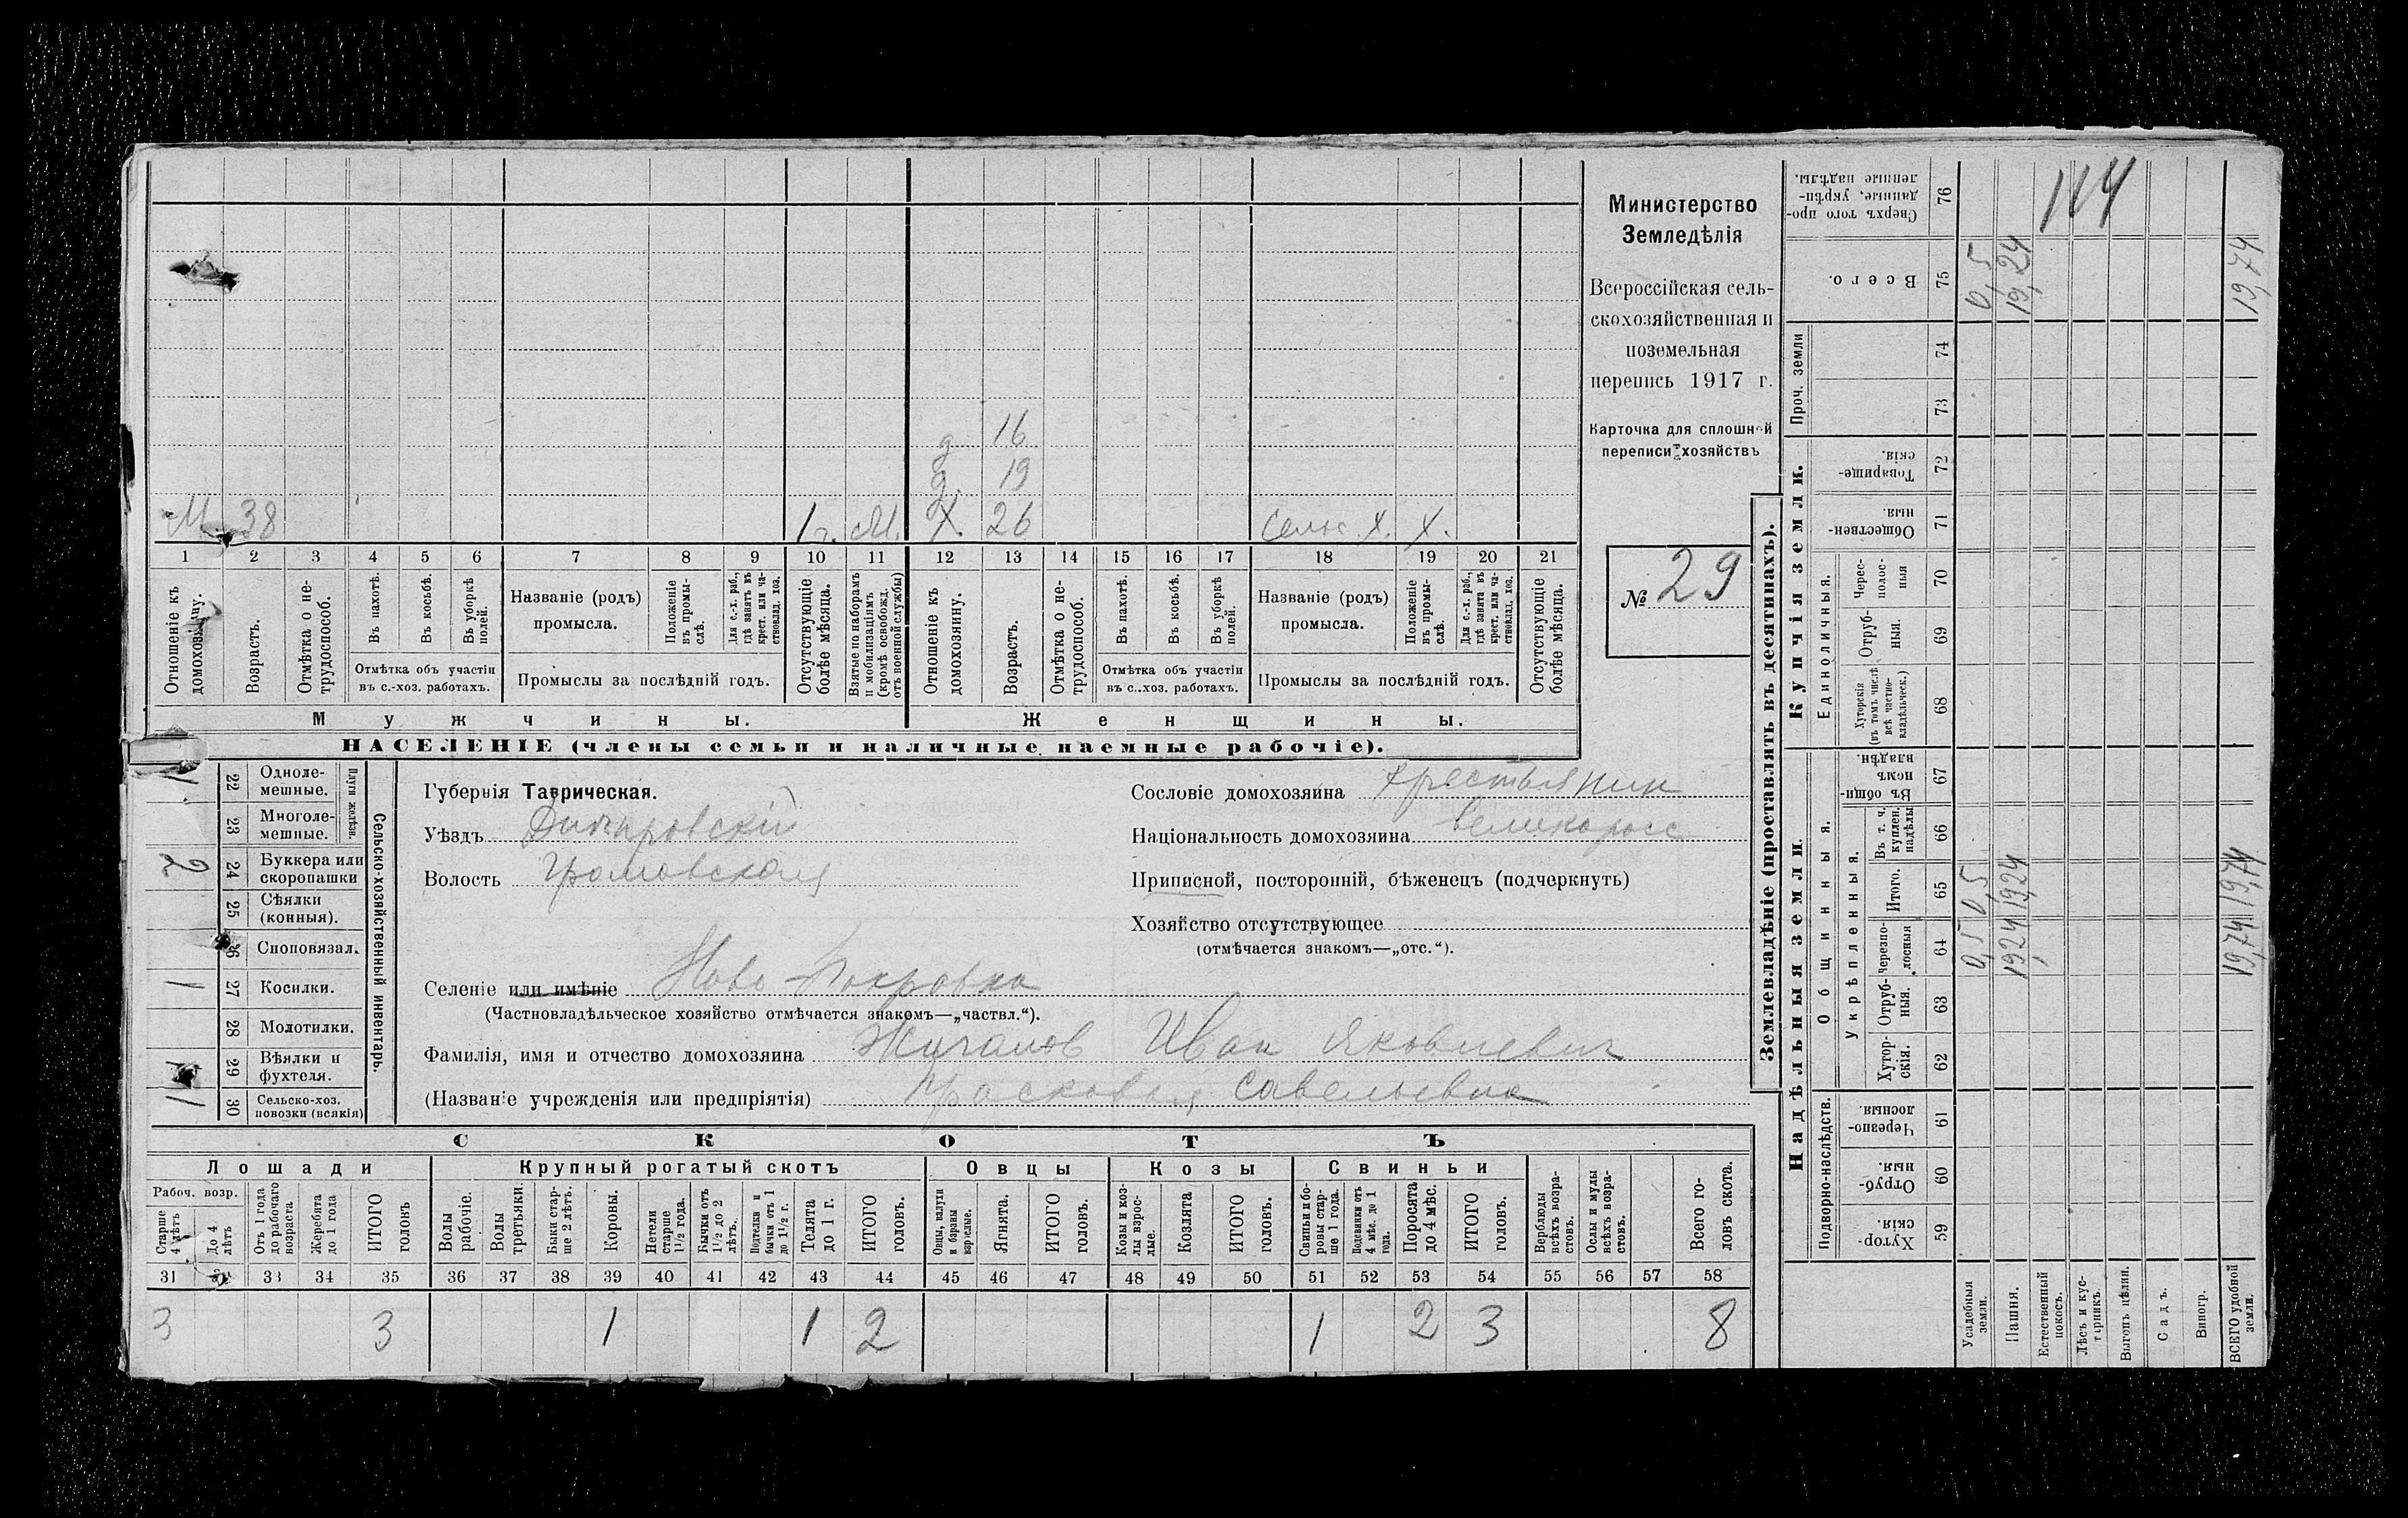 Министерство
Земледѣлія
Всероссійская сель-
скохозяйственная и
поземельная
перепись 1917 г.
Карточка для сплошной
переписи хозяйствъ
№ 29
д 16
д. 19
М. 38 1 г. М. Х. 26 сельс. х. х.
1 2 3 4 5 6 7 8 9 10 11 12 13 14 15 16 17 18 19 20 21
Отношеніе къ домохозяину.
Возрастъ.
Отмѣтка о не-
трудоспособ.
Въ пахотѣ.
Въ косьбѣ.
Въ уборкѣ
полей.
Отмѣтка объ участіи
въ с.-хоз. работахъ.
Названіе (родъ)
промысла.
Положеніе
въ промы-
слѣ.
Для с.-х. раб.,
гдѣ занятъ въ
крест. или ча-
стновлад. хоз.
Промыслы за послѣдній годъ.
Отсутствующіе
болѣе мѣсяца.
Взятые по наборамъ
и мобилизаціямъ
(кромѣ освобожд.
отъ военной службы)
Отношеніе къ
домохозяину.
Возрастъ.
Отмѣтка о не-
трудоспособ.
Въ пахотѣ.
Въ косьбѣ.
Въ уборкѣ
полей.
Отмѣтка объ участіи
въ с.-хоз. работахъ.
Названіе (родъ)
промысла.
Положеніе
въ промы-
слѣ.
Для с.-х. раб.,
гдѣ занята въ
крест. или ча-
стновлад. хоз.
Промыслы за послѣдній годъ.
Отсутствующіе
болѣе мѣсяца.
Мужчины.
Женщины.
НАСЕЛЕНІЕ (члены семьи и наличные наемные рабочіе).
Сельско-хозяйственный инвентарь.
Плуги желѣзн.
22 Одноле-
мешные. 1
23 Многоле-
мешные.
24 Буккера или
скоропашки 2
25 Сѣялки
(конныя).
26 Сноповязал.
27 Косилки. 1
28 Молотилки.
29 Вѣялки и
фухтеля. 1
30 Сельско-хоз.
повозки (всякія) 1
Губернія Таврическая.
Уѣздъ Днѣпровскій
Волость Громовская
Селеніе или имѣніе Ново-Покровка
(Частновладѣльческое хозяйство отмѣчается знакомъ—„частвл.“).
Фамилія, имя и отчество домохозяина Жигалов Иван Яковлевич
(Названіе учрежденія или предпріятія) Прасковья Савельевна
Сословіе домохозяина крестьянин
Національность домохозяина великоросс
Приписной, посторонній, бѣженецъ (подчеркнуть)
Хозяйство отсутствующее
(отмѣчается знакомъ—„отс.“).
СКОТЪ
Лошади
Рабоч. возр.
Старше
4 лѣтъ
До 4
лѣтъ
Отъ 1 года
до рабочаго
возраста
Жеребята
до 1 года
ИТОГО
головъ
Крупный рогатый скотъ
Волы
рабочіе.
Волы
третьяки.
Быки стар-
ше 2 лѣтъ.
Коровы.
Нетели
старше
1½ года.
Бычки отъ
1½ до 2
лѣтъ.
Подтелки и
бычки отъ 1
до 1½ г.
Телята
до 1 г.
ИТОГО
головъ.
Овцы
Овцы, валухи
и бараны
взрослые.
Ягнята.
ИТОГО
головъ.
Козы
Козы и коз-
лы взрос-
лые.
Козлята
ИТОГО
головъ.
Свиньи
Свиньи и бо-
ровы стар-
ше 1 года.
Подсвинки отъ
4 мѣс. до 1
года.
Поросята
до 4 мѣс.
ИТОГО
головъ.
Верблюды
всѣхъ возра-
стовъ.
Ослы и мулы
всѣхъ возра-
стовъ.
Всего го-
ловъ скота.
31 33 34 35 36 37 38 39 40 41 42 43 44 45 46 47 48 49 50 51 52 53 54 55 56 57 58
3 3 1 1 2 1 2 3 8
Землевладѣніе (проставлять въ десятинахъ).
Надѣльныя земли.
Подворно-наслѣдств.
Хутор-
скія. 59
Отруб-
ныя. 60
Черезпо-
лосныя. 61
Общинныя.
Укрѣпленныя.
Хутор-
скія. 62
Отруб-
ныя. 63
Черезпо-
лосныя 64
Итого. 65
Въ т. ч.
куплен.
надѣлы 66
Въ общин-
номъ
владѣн. 67
Купчія земли.
Единоличныя.
Хуторскія
(въ томъ числѣ
всѣ частно-
владѣльческ.) 68
Отруб-
ныя. 69
Черес-
полос-
ныя 70
Обществен-
ныя. 71
Товарище-
скія. 72
Проч. земли
73
74
Всего. 75
Сверхъ того про-
данные, укрѣп-
ленные надѣлы. 76
Усадебныя
земли. 0,5 0,5 0,5
Пашня. 19,24 19,24 19,24
Естественный
покосъ.
Лѣсъ и кус-
тарникъ.
Выгонъ цѣлин.
Садъ.
Виногр.
ВСЕГО удобной
земли. 19,74 19,74 19,74
114